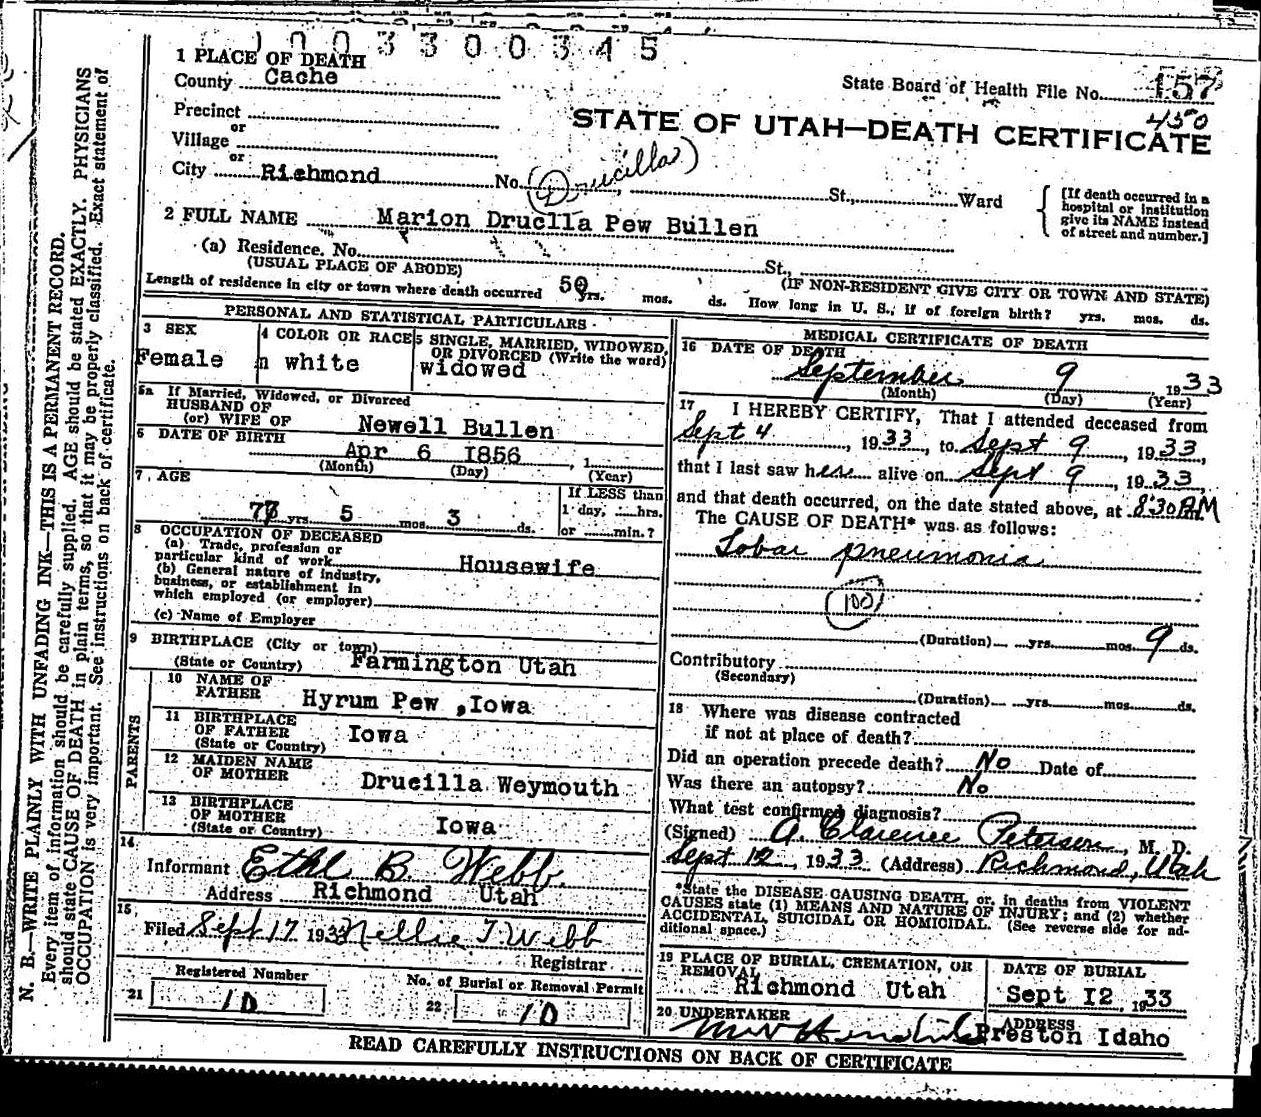 1003300345
1 PLACE OF DEATH
County Cache
State Board of Health File No. 157
450
Precinct
or
Village
or
City Richmond No. (Drucilla) St., Ward
STATE OF UTAH—DEATH CERTIFICATE
[If death occurred in a
hospital or institution
give its NAME instead
of street and number.]
2 FULL NAME Marion Druclla Pew Bullen
(a) Residence. No. St.,
(USUAL PLACE OF ABODE) (IF NON-RESIDENT GIVE CITY OR TOWN AND STATE)
Length of residence in city or town where death occurred 50 yrs. mos. ds. How long in U. S., if of foreign birth? yrs. mos. ds.
PERSONAL AND STATISTICAL PARTICULARS
3 SEX
Female
4 COLOR OR RACE
white
5 SINGLE, MARRIED, WIDOWED,
OR DIVORCED (Write the word)
widowed
5a If Married, Widowed, or Divorced
HUSBAND OF
(or) WIFE OF Newell Bullen
6 DATE OF BIRTH Apr 6 1856, 1
(Month) (Day) (Year)
7 AGE
77 yrs. 5 mos. 3 ds.
If LESS than
1 day, hrs.
or min.?
8 OCCUPATION OF DECEASED
(a) Trade, profession or
particular kind of work Housewife
(b) General nature of industry,
business, or establishment in
which employed (or employer)
(c) Name of Employer
9 BIRTHPLACE (City or town)
(State or Country) Farmington Utah
PARENTS
10 NAME OF
FATHER Hyrum Pew ,Iowa
11 BIRTHPLACE
OF FATHER Iowa
(State or Country)
12 MAIDEN NAME
OF MOTHER Drucilla Weymouth
13 BIRTHPLACE
OF MOTHER
(State or Country) Iowa
14
Informant Ethl B. Webb
Address Richmond Utah
15
Filed Sept 17 1933 Nellie T. Webb
Registrar
Registered Number
21 10
No. of Burial or Removal Permit
22 10
MEDICAL CERTIFICATE OF DEATH
16 DATE OF DEATH
September 9 1933
(Month) (Day) (Year)
17 I HEREBY CERTIFY, That I attended deceased from
Sept 4, 1933, to Sept 9, 1933,
that I last saw her alive on Sept 9, 1933,
and that death occurred, on the date stated above, at 8:30 PM
The CAUSE OF DEATH* was as follows:
Lobar pneumonia
100
(Duration) yrs. mos. 9 ds.
Contributory
(Secondary)
(Duration) yrs. mos. ds.
18 Where was disease contracted
if not at place of death?
Did an operation precede death? No Date of
Was there an autopsy? No
What test confirmed diagnosis?
(Signed) A. Clarence Petersen, M. D.
Sept 12, 1933 (Address) Richmond, Utah
*State the DISEASE CAUSING DEATH, or, in deaths from VIOLENT
CAUSES state (1) MEANS AND NATURE OF INJURY; and (2) whether
ACCIDENTAL, SUICIDAL OR HOMICIDAL. (See reverse side for ad-
ditional space.)
19 PLACE OF BURIAL, CREMATION, OR
REMOVAL
Richmond Utah
DATE OF BURIAL
Sept 12, 1933
20 UNDERTAKER
ADDRESS
Preston Idaho
READ CAREFULLY INSTRUCTIONS ON BACK OF CERTIFICATE
N. B.—WRITE PLAINLY WITH UNFADING INK—THIS IS A PERMANENT RECORD.
Every item of information should be carefully supplied. AGE should be stated EXACTLY. PHYSICIANS
should state CAUSE OF DEATH in plain terms, so that it may be properly classified. Exact statement of
OCCUPATION is very important. See instructions on back of certificate.